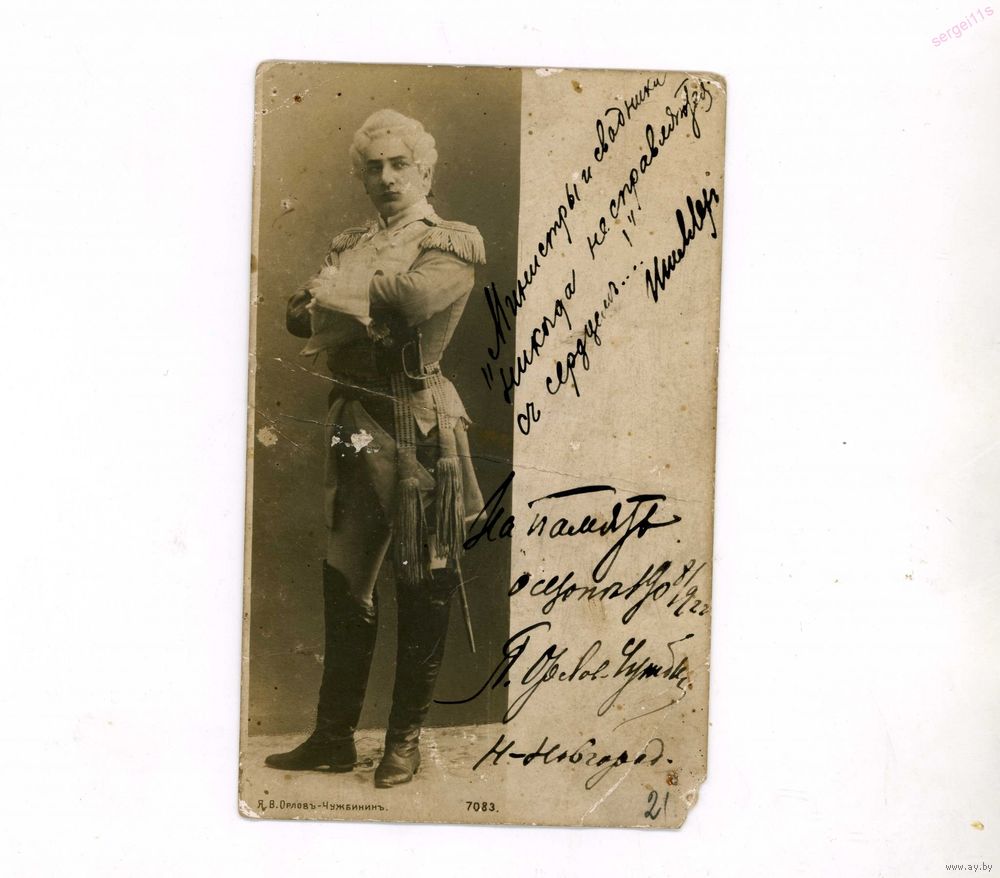 sergei11s
"Министры и всадники
никогда не справляются
съ сердцемъ....!"
На память
о сезоне 190 8/
П. Орлов-Чужбин
Н-Новгород.
Я. В. Орловъ-Чужбининъ.
7083.
21
www.ay.by